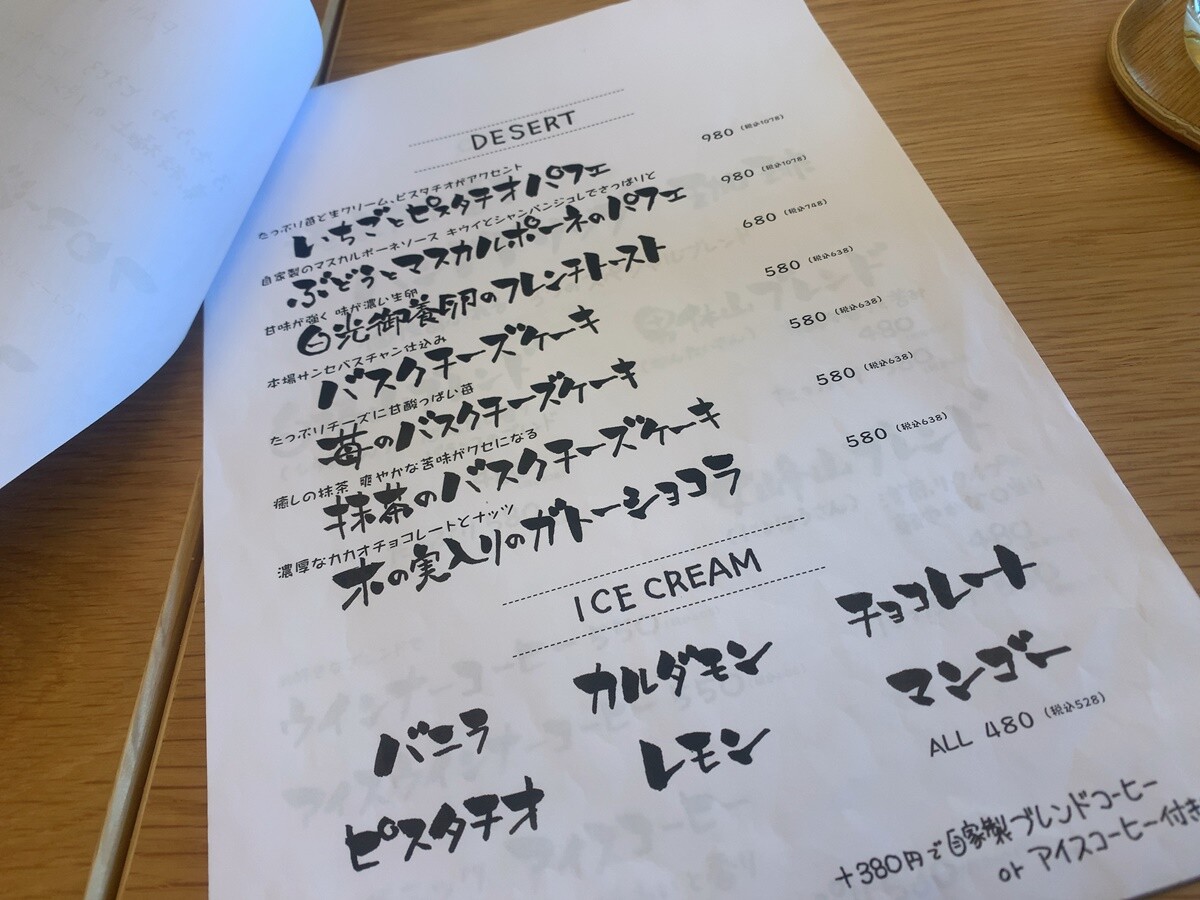 DESERT
たっぷり苺と生クリーム、ピスタチオがアクセント
いちごとピスタチオパフェ 980 (税込1078)
自家製のマスカルポーネソース キウイとシャンパンジュレでさっぱりと
ぶどうとマスカルポーネのパフェ 980 (税込1078)
甘味が強く 味が濃い生卵
白光御養卵のフレンチトースト 680 (税込748)
本場サンセバスチャン仕込み
バスクチーズケーキ 580 (税込638)
たっぷりチーズに甘酸っぱい苺
苺のバスクチーズケーキ 580 (税込638)
癒しの抹茶 爽やかな苦味がクセになる
抹茶のバスクチーズケーキ 580 (税込638)
濃厚なカカオチョコレートとナッツ
木の実入りのガトーショコラ 580 (税込638)
ICE CREAM
バニラ カルダモン チョコレート
ピスタチオ レモン マンゴー
ALL 480 (税込528)
+380円で自家製ブレンドコーヒー
or アイスコーヒー付き